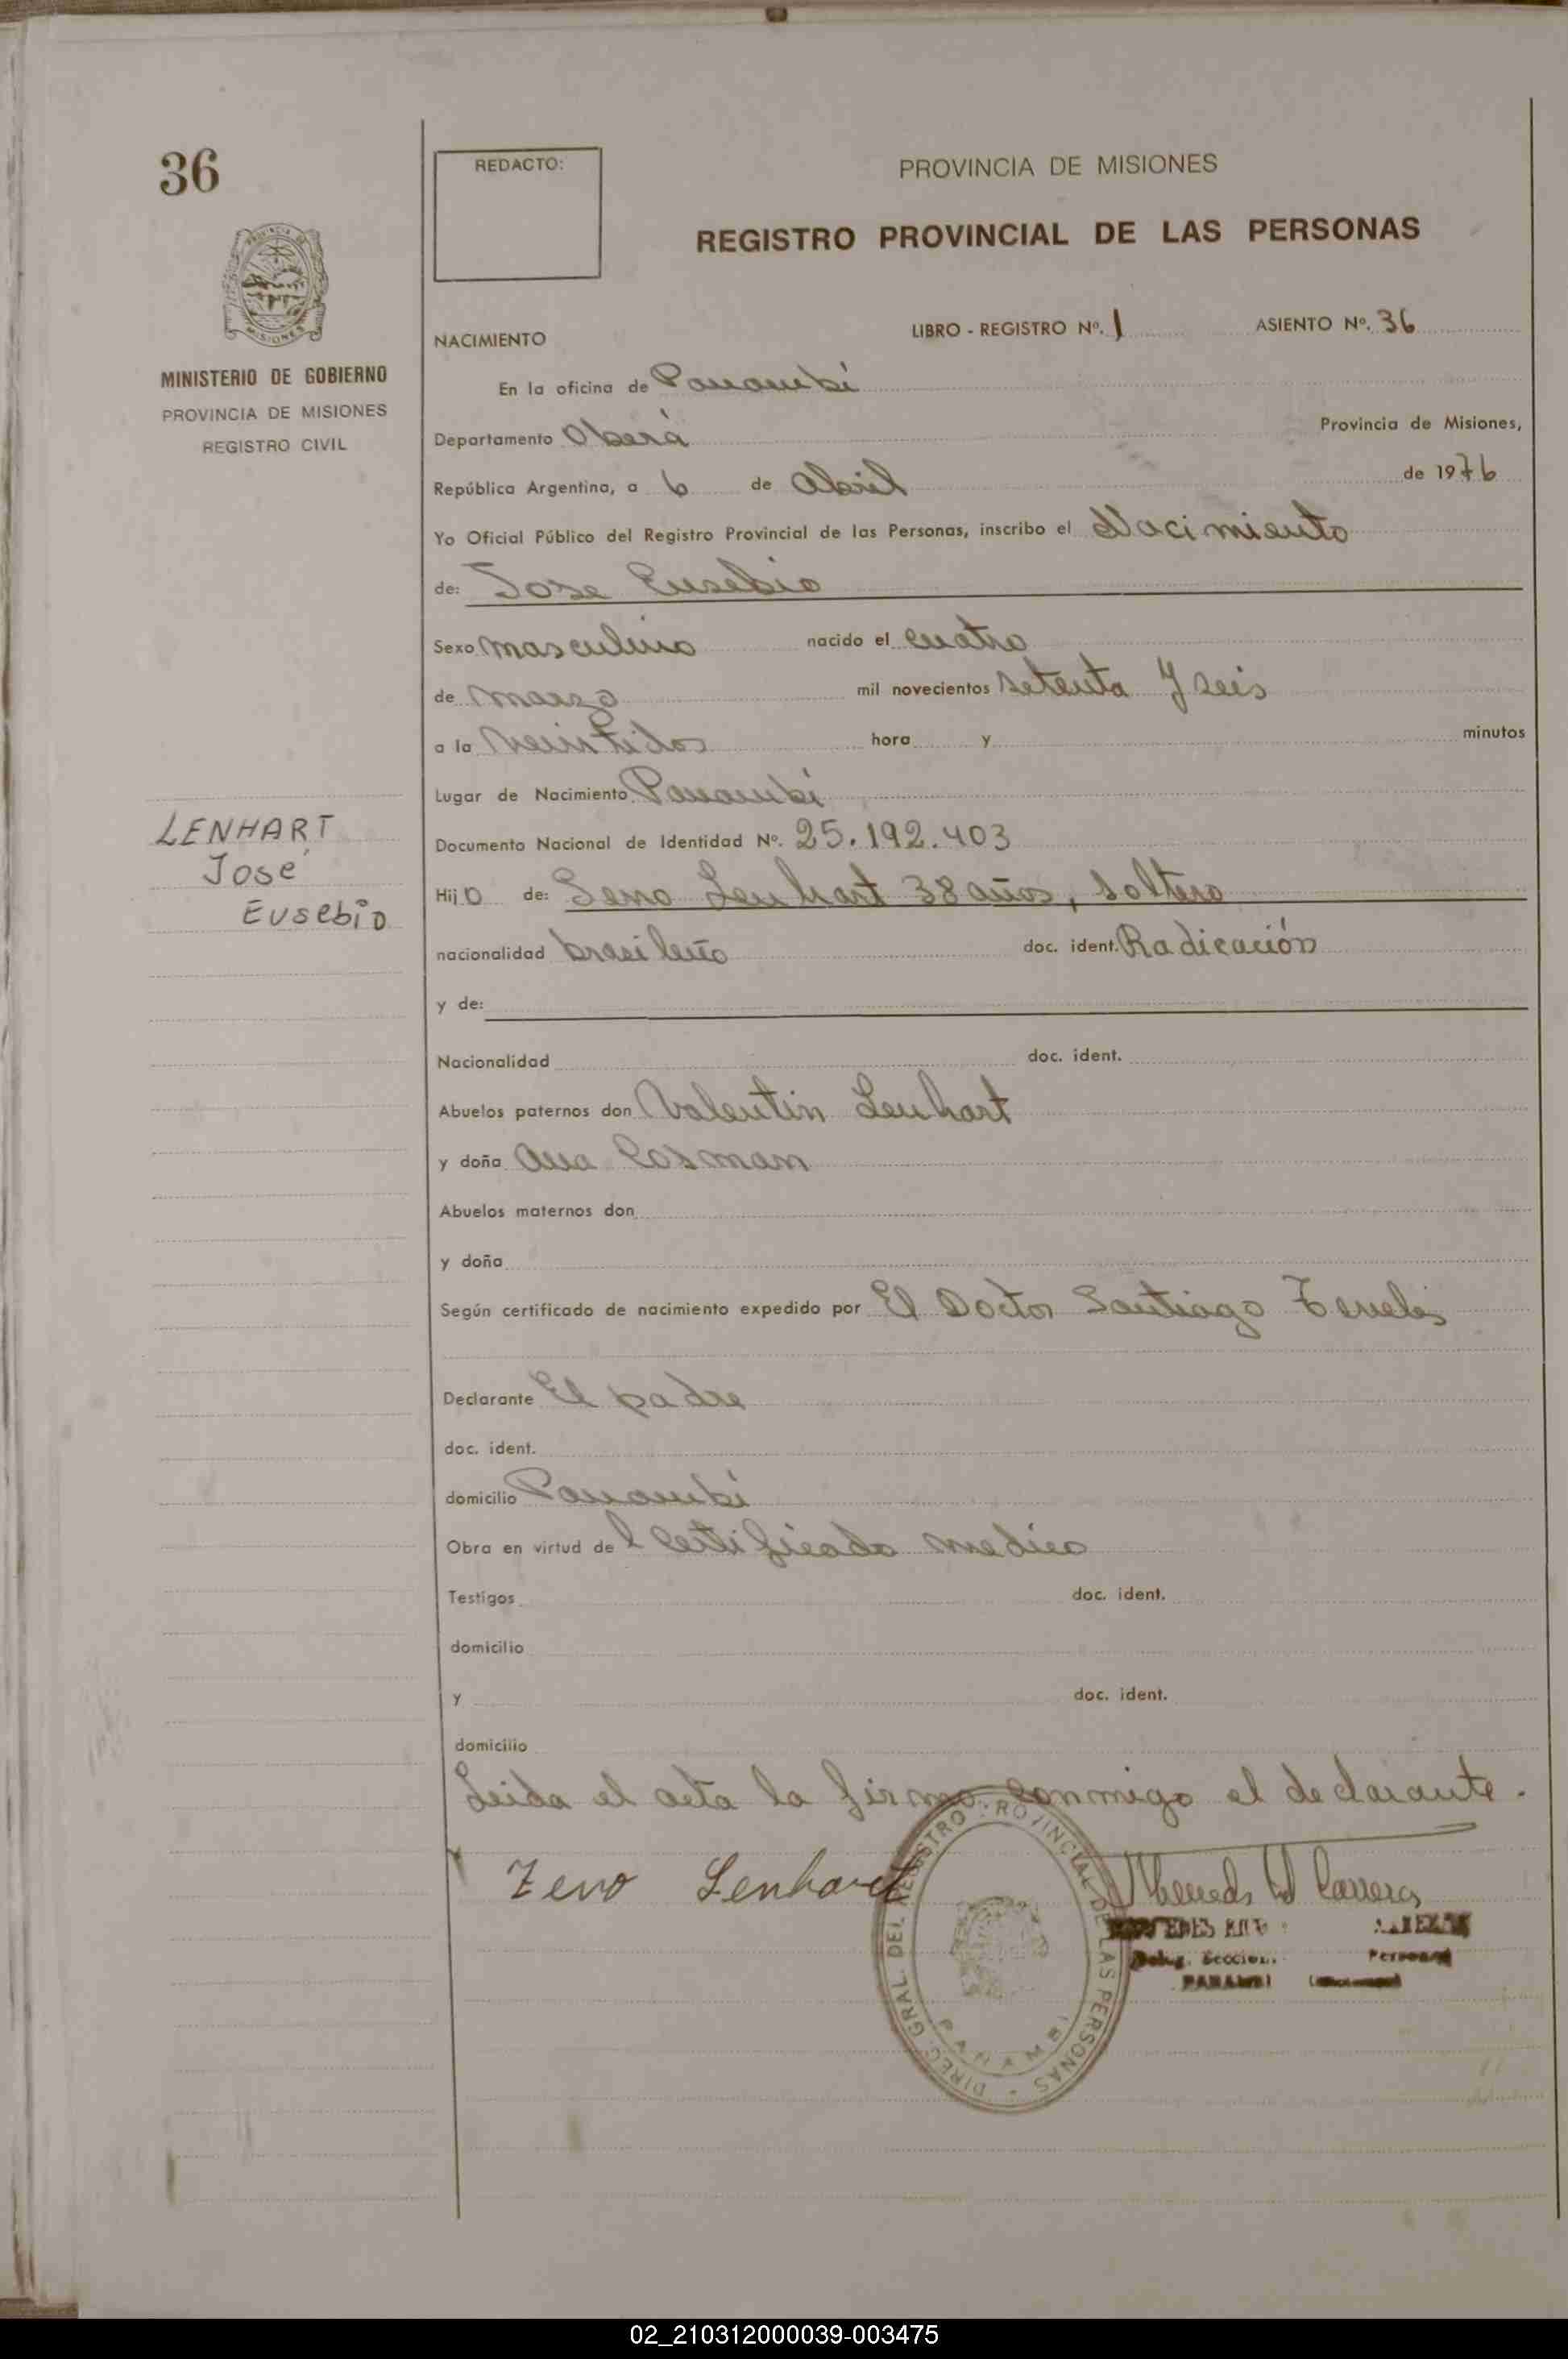 36
REDACTO:
PROVINCIA DE MISIONES
REGISTRO PROVINCIAL DE LAS PERSONAS
PROVINCIA DE
MISIONES
MINISTERIO DE GOBIERNO
PROVINCIA DE MISIONES
REGISTRO CIVIL
NACIMIENTO LIBRO - REGISTRO Nº. 1 ASIENTO Nº. 36
En la oficina de Panambí
Departamento Oberá Provincia de Misiones,
República Argentina, a 6 de Abril de 1976
Yo Oficial Público del Registro Provincial de las Personas, inscribo el Nacimiento
de: Jose Eusebio
Sexo masculino nacido el cuatro
de marzo mil novecientos setenta y seis
a la veintidos hora y minutos
Lugar de Nacimiento Panambí
LENHART
José
Eusebio
Documento Nacional de Identidad Nº. 25.192.403
Hijo de: Seno Lenhart 38 años, soltero
nacionalidad brasileño doc. ident. Radicación
y de:
Nacionalidad doc. ident.
Abuelos paternos don Valentin Lenhart
y doña Ana Cosman
Abuelos maternos don
y doña
Según certificado de nacimiento expedido por El Doctor Santiago
Declarante El padre
doc. ident.
domicilio Panambí
Obra en virtud del Certificado medico
Testigos doc. ident.
domicilio
y doc. ident.
domicilio
Leida el acta la firma conmigo el declarante.
Zeno Lenhart
DIREC. GRAL. DEL REGISTRO PROVINCIAL DE LAS PERSONAS
PANAMBI
PANAMBI